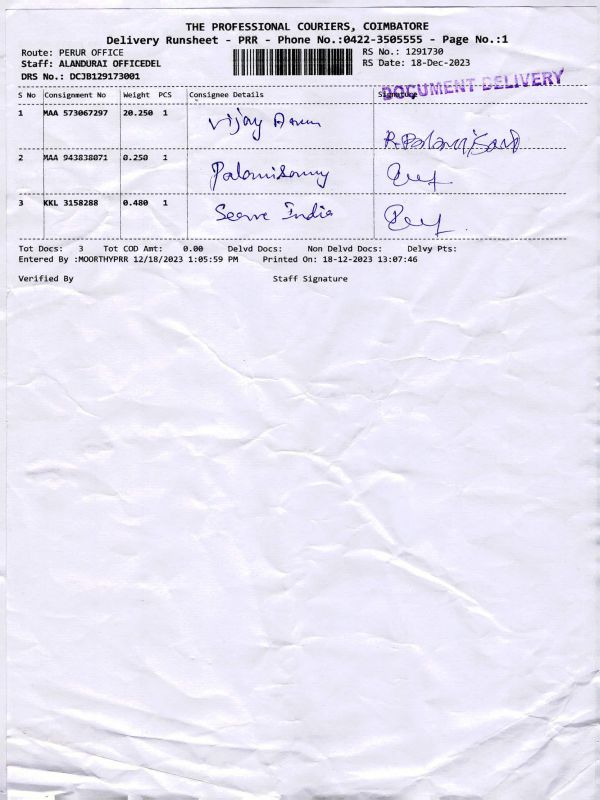 THE PROFESSIONAL COURIERS, COIMBATORE
Delivery Runsheet - PRR - Phone No.:0422-3505555 - Page No.:1
Route: PERUR OFFICE RS No.: 1291730
Staff: ALANDURAI OFFICEDEL RS Date: 18-Dec-2023
DRS No.: DCJB129173001
DOCUMENT DELIVERY
S No Consignment No Weight PCS Consignee Details Signature
1 MAA 573067297 20.250 1 Vijay
2 MAA 943838071 0.250 1 Palanisamy
3 KKL 3158288 0.480 1 Seerve India
Tot Docs: 3 Tot COD Amt: 0.00 Delvd Docs: Non Delvd Docs: Delvy Pts:
Entered By :MOORTHYPRR 12/18/2023 1:05:59 PM Printed On: 18-12-2023 13:07:46
Verified By Staff Signature